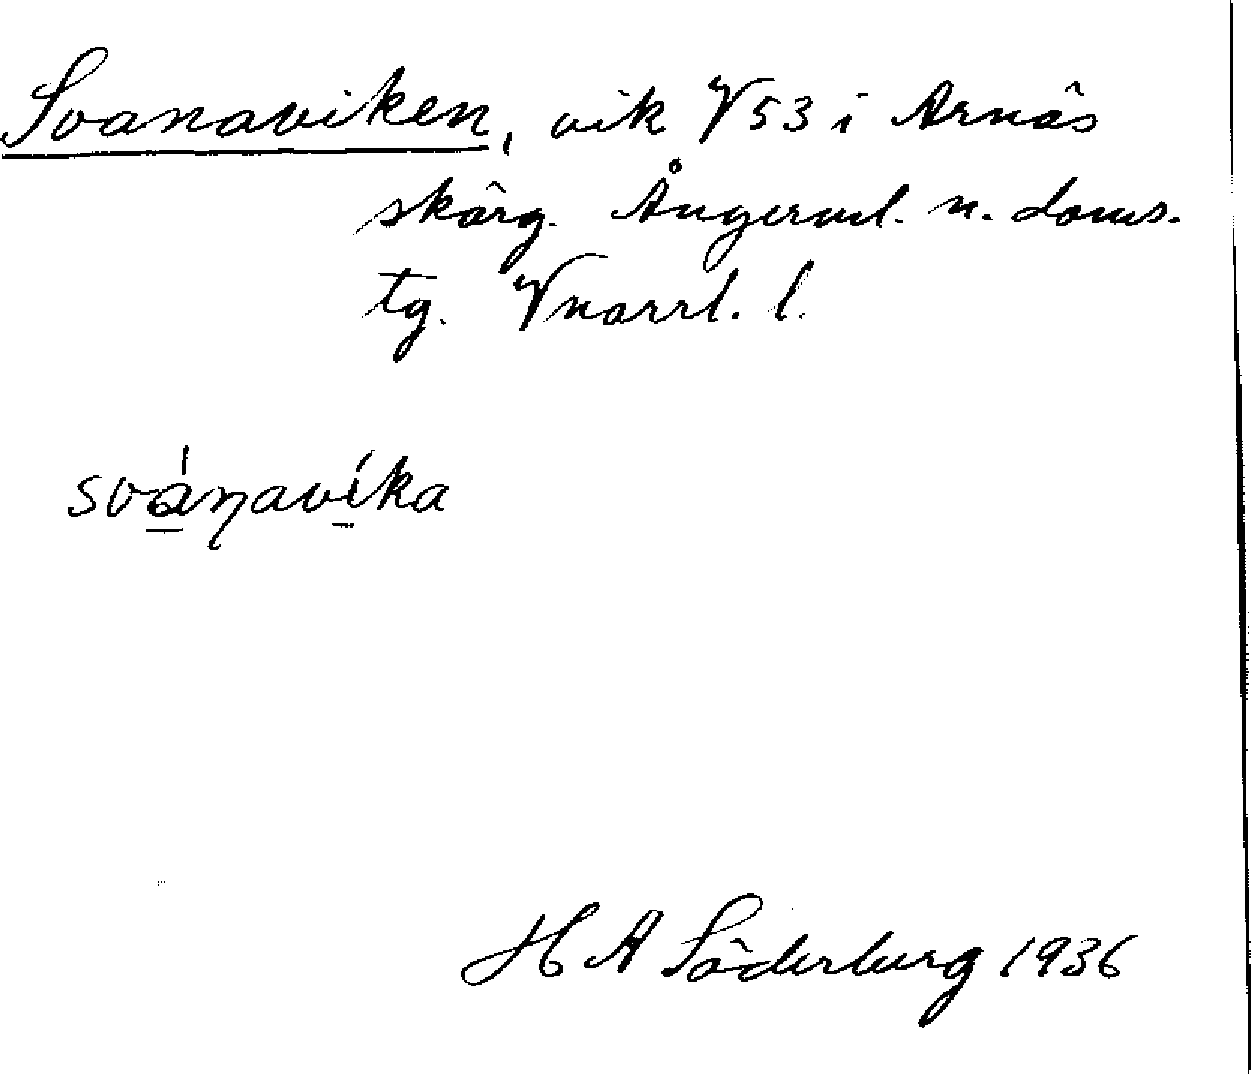 Svanaviken, vik V 53 i Arnäs
skärg. Ångerml. n. doms.
tg. Vnorrl. l.
svánavíka
H A Söderberg 1936